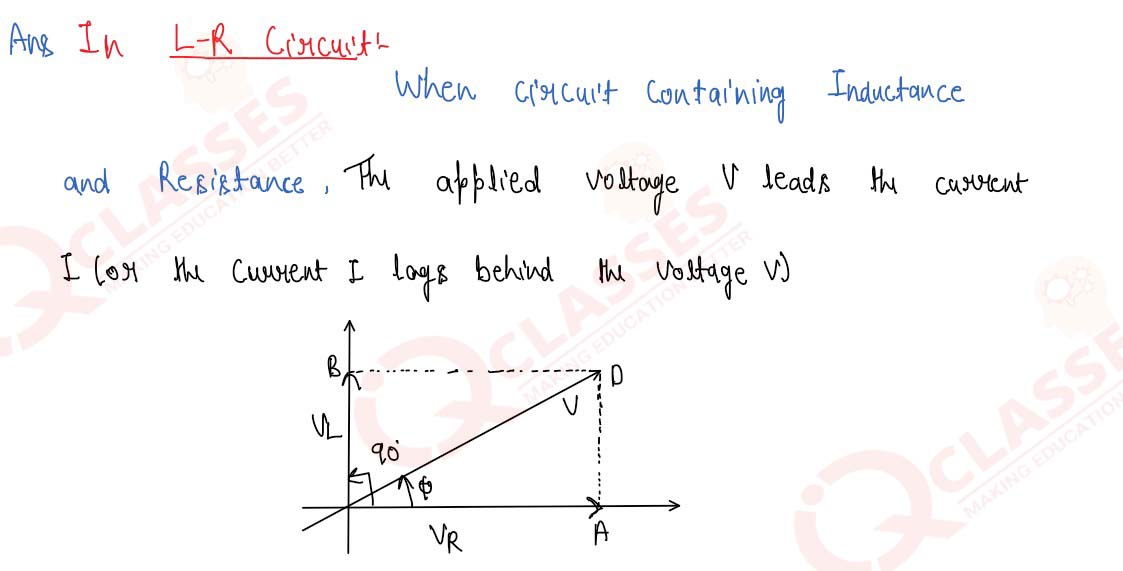 Ans In L-R Circuit:-
When circuit containing Inductance
and Resistance, The applied voltage V leads the current
I (or the current I lags behind the voltage V)
B D
V
VL
90°
ϕ
VR A
iQ CLASSES
MAKING EDUCATION BETTER
iQ CLASSES
MAKING EDUCATION BETTER
iQ CLASSES
MAKING EDUCATION